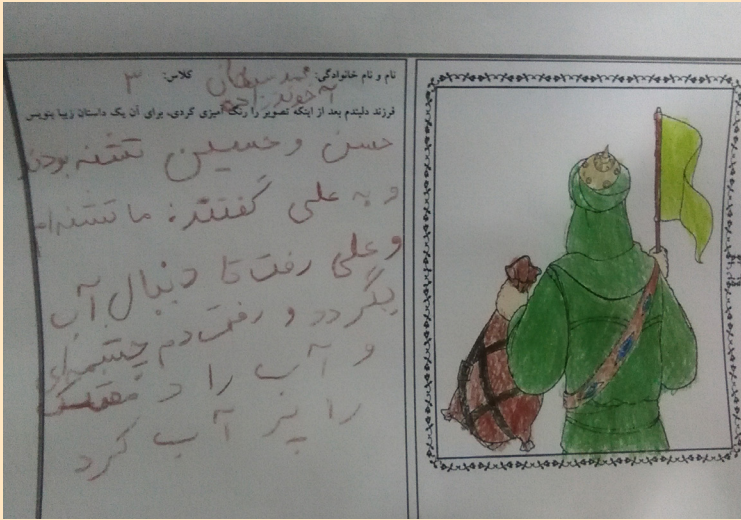 نام و نام خانوادگی: محمد سبحان کلاس: ۳
آخوند
فرزند دلبندم بعد از اینکه تصویر را رنگ آمیزی کردی، برای آن یک داستان زیبا بنویس
حسن و حسین تشنه بودند
و به علی گفتند: ما تشنه‌ایم
و علی رفت تا دنبال آب
بگردد و رفت دم چشمه‌ای
و آب را د
را پر آب کرد